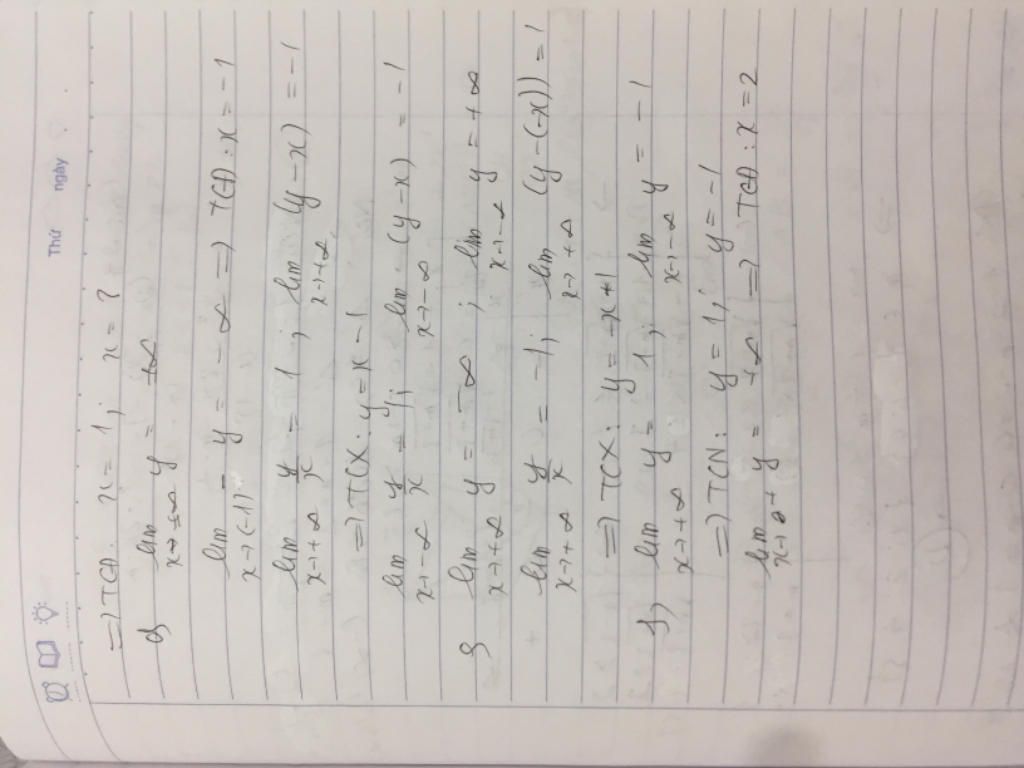 Thứ ngày
=> TCĐ. x = 1 ; x = ?
lim x→±∞ y = ±∞
lim x→(-1)⁻ y = -∞ => TCĐ : x = -1
lim x→+∞ y/x = 1 ; lim x→+∞ (y-x) = -1
=> TCX : y = x - 1
lim x→-∞ y/x = 1 ; lim x→-∞ (y-x) = -1
lim x→+∞ y = -∞ ; lim x→-∞ y = +∞
lim x→+∞ y/x = -1 ; lim x→+∞ (y-(-x)) = 1
=> TCX : y = -x+1
f, lim x→+∞ y = 1 ; lim x→-∞ y = -1
=> TCN : y = 1 ; y = -1
lim x→2⁺ y = +∞ => TCĐ : x = 2